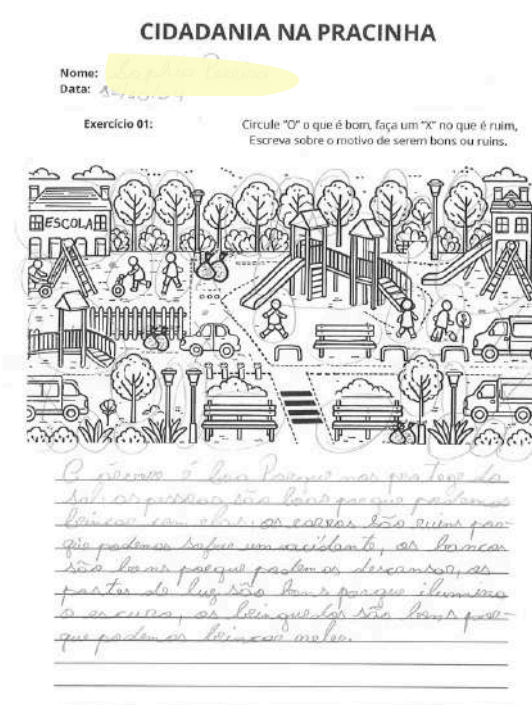 CIDADANIA NA PRACINHA
Nome:
Data:
Exercício 01:
Circule "O" o que é bom, faça um "X" no que é ruim,
Escreva sobre o motivo de serem bons ou ruins.
ESCOLA
é boa Porque nos protege do
sol, as pessoas são boas porque podemos
brincar com elas, os carros são ruins por-
que podemos sofrer um acidente, os bancos
são bons porque podemos descansar, os
postes de luz são bons porque ilumina
o escuro, os brinquedos são bons por-
que podemos brincar neles.